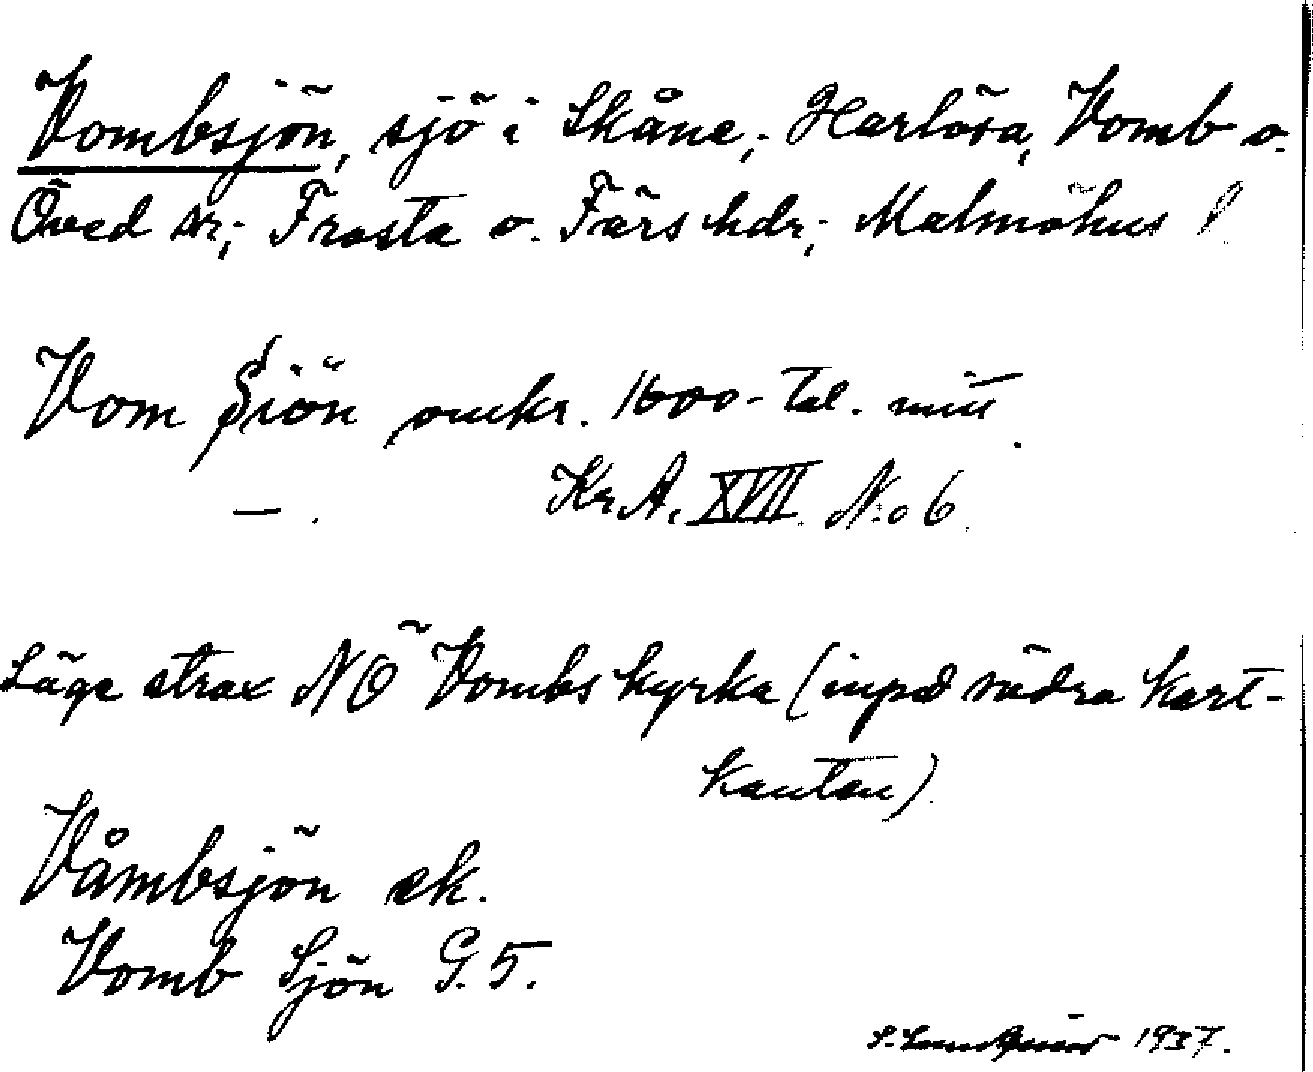 Vombsjön, sjö i Skåne; Harlösa, Vomb o.
Öved snr; Frosta o. Färs hdr; Malmöhus l.
Vom Siön omkr. 1600-tal. mitt
— . Kr.A. XVII. N:o 6.
Läge strax NÖ Vombs kyrka (inpå södra kart-
kanten).
Våmbsjön ek.
Vomb Sjön G. 5.
1937.